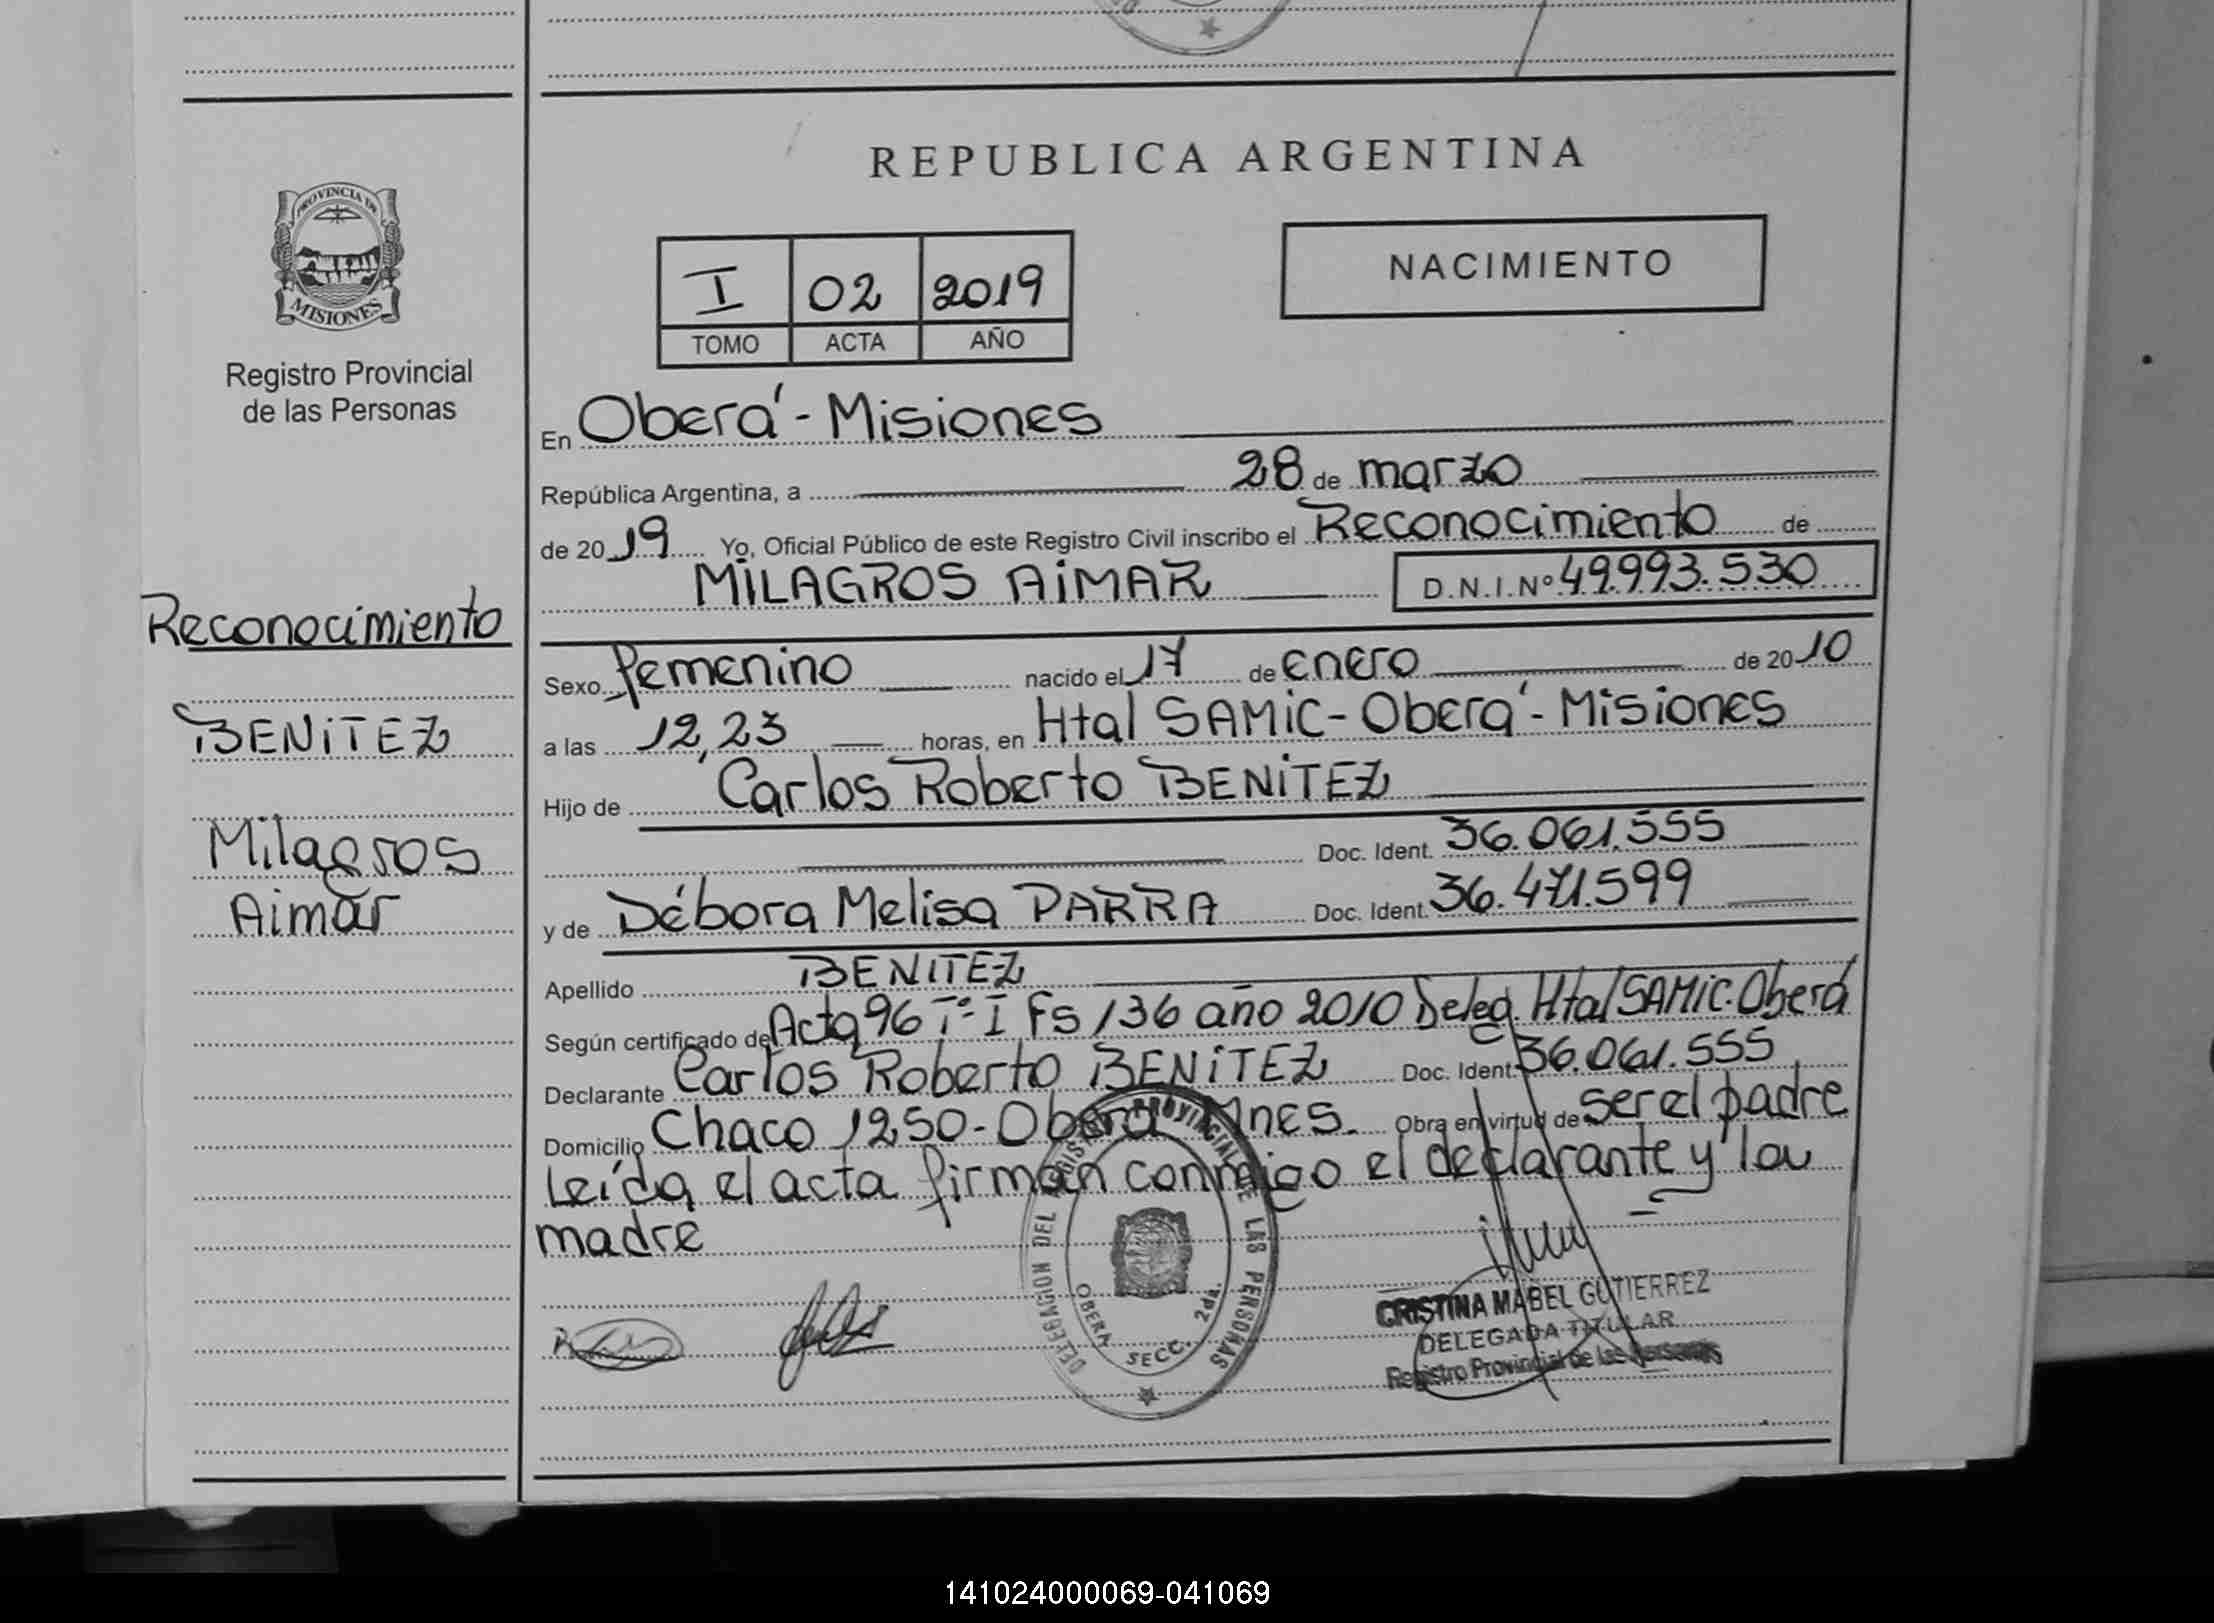 PROVINCIA DE
MISIONES
Registro Provincial
de las Personas
Reconocimiento
BENITEZ
Milagros
Aimar
REPUBLICA ARGENTINA
I 02 2019
TOMO ACTA AÑO
NACIMIENTO
En Oberá - Misiones
República Argentina, a 28 de marzo
de 2019 Yo, Oficial Público de este Registro Civil inscribo el Reconocimiento de
MILAGROS AIMAR D.N.I. Nº 49.993.530
Sexo femenino nacido el 17 de enero de 2010
a las 12,23 horas, en Htal SAMIC - Oberá - Misiones
Hijo de Carlos Roberto BENITEZ
Doc. Ident. 36.061.555
y de Débora Melisa PARRA Doc. Ident. 36.471.599
Apellido BENITEZ
Según certificado de Acta 96 Tº I Fs 136 año 2010 Deleg. Htal SAMIC. Oberá
Declarante Carlos Roberto BENITEZ Doc. Ident. 36.061.555
Domicilio Chaco 1250 - Oberá Mnes. Obra en virtud de ser el padre
Leída el acta firman conmigo el declarante y la
madre
DELEGACION DEL REGISTRO PROVINCIAL DE LAS PERSONAS
OBERA SECC. 2da.
CRISTINA MABEL GUTIERREZ
DELEGADA TITULAR
Registro Provincial de las Personas
141024000069-041069